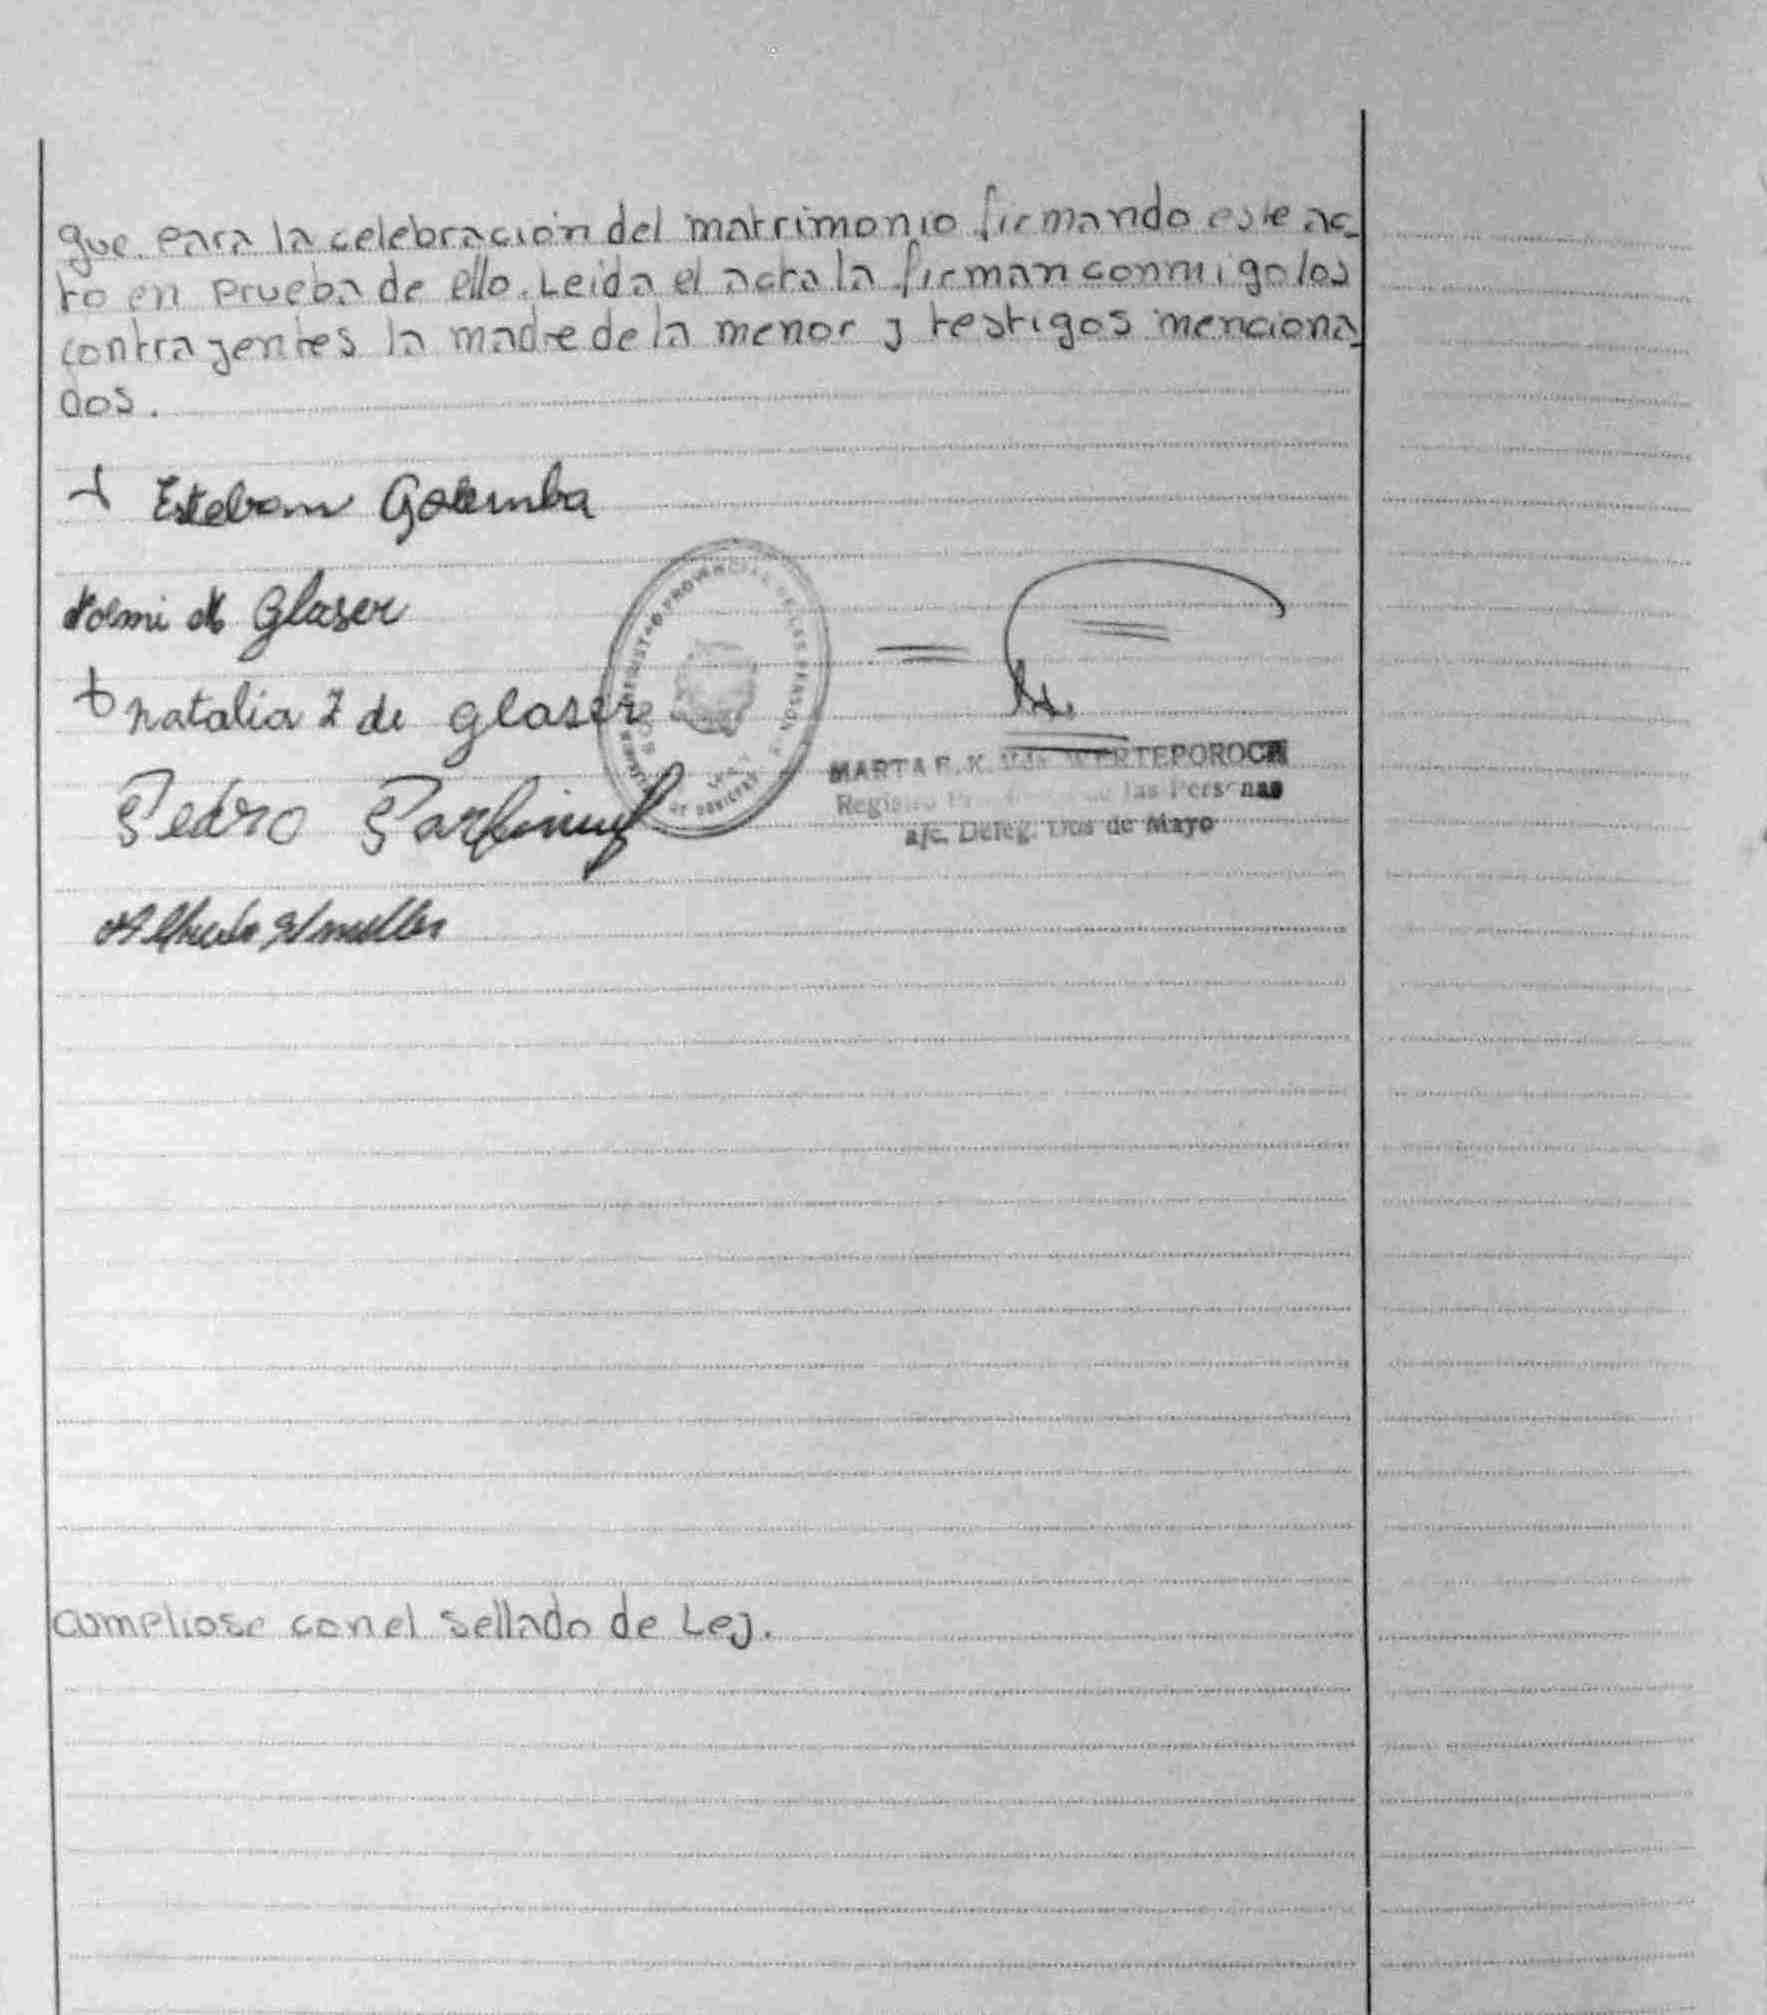 que para la celebración del matrimonio firmando este ac_
to en prueba de ello. Leida el acta la firman conmigo los
contrayentes la madre de la menor y testigos menciona_
dos.
Esteban
Noemi Glaser
natalia Z de glaser
Pedro
MARTA E. K. Vda. WERTEPOROCH
Registro de las Personas
a/c. Deleg. Dos de Mayo
Alfredo
cumpliose con el sellado de Ley.